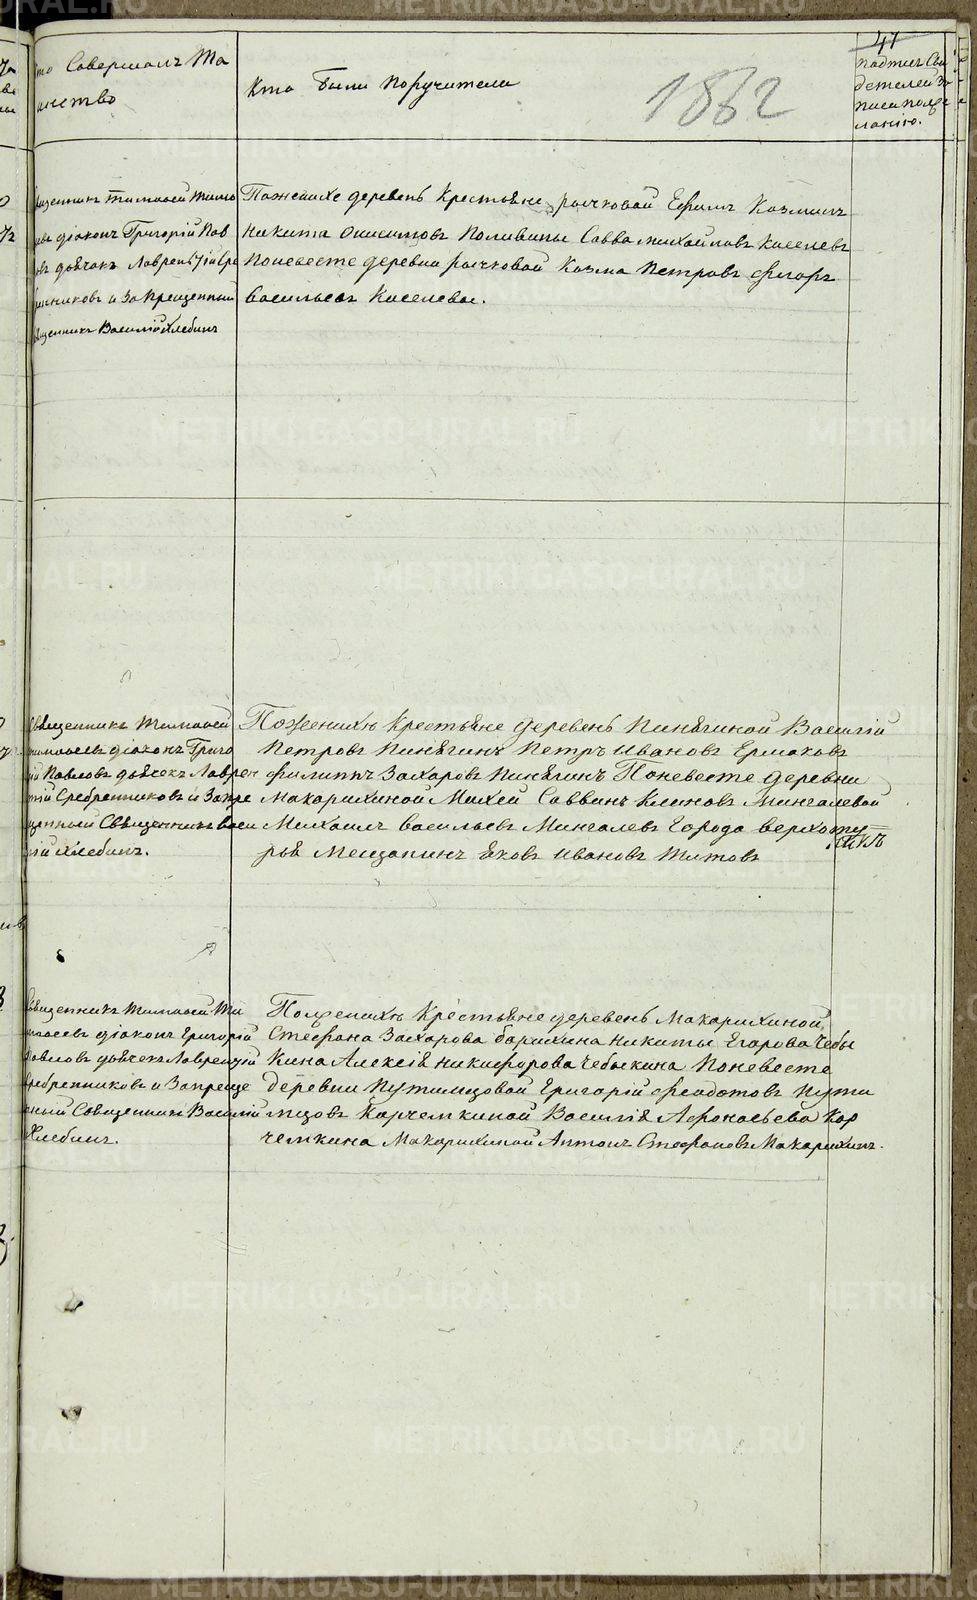 41
то Совершалъ Та
инство
Кто были поручители
1862
Подпись Сви
детелей за
писи по же
ланію.
вященникъ Тимофей Тимо
діаконъ Григорій Пав
дьячокъ Лаврентій Сре
бренниковъ и Запрещенный
вященникъ Василій Хлебинъ
По женихе деревень крестьяне рычковой Ефимъ Козминъ
Никита Онисимовъ Савва михайловъ Киселевъ
По невесте деревни рычковой Козма Петровъ Фиторъ
васильевъ Киселевы.
Священникъ Тимофей
Тимофеевъ діаконъ Григо
рій Павловъ дьячекъ Лаврен
тій Сребренниковъ и Запре
щенный Священникъ Васи
лій Хлебинъ.
По женихѣ крестьяне деревень Пинягиной Василій
Петровъ Пинягинъ Петръ Ивановъ Ермаковъ
Филиппъ Захаровъ Пинягинъ По невесте деревни
Макарихиной Михей Саввинъ Клиновъ Мингалевой
Михаилъ Васильевъ Мингалевъ Города верхоту=
рья Мещанинъ Яковъ Ивановъ Титовъ
Священникъ Тимофей Ти
мофеевъ діаконъ Григорій
Павловъ дьячекъ Лаврентій
Сребренниковъ и Запреще
нный Священникъ Василій
Хлебинъ.
По женихѣ крестьяне деревень Макарихиной,
Стефана Захарова барихина Никиты Егорова Чебы
кина Алексія Никифорова Чебыкина По невесте
деревни Путимцовой Григорій Феодотовъ Пути
мцовъ Карчемкиной Василія Афонасьева Кор
чемкина Макарихиной Антонъ Стефановъ Макарихинъ.
METRIKI.GASO-URAL.RU